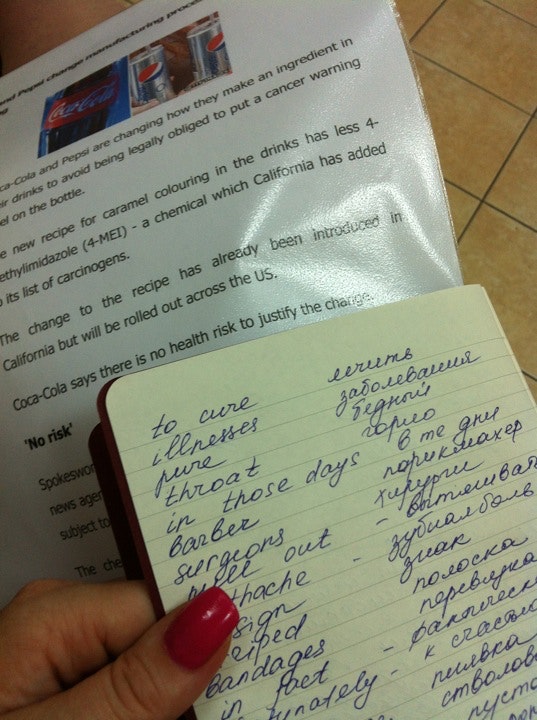 and Pepsi change manufacturing
Coca-Cola
ca-Cola and Pepsi are changing how they make an ingredient in
ir drinks to avoid being legally obliged to put a cancer warning
el on the bottle.
e new recipe for caramel colouring in the drinks has less 4-
ethylimidazole (4-MEI) - a chemical which California has added
o its list of carcinogens.
The change to the recipe has already been introduced in
California but will be rolled out across the US.
Coca-Cola says there is no health risk to justify the change.
'No risk'
Spokeswo
news agen
subject to
The che
to cure лечить
illnesses заболевания
pure бедный
throat горло
in those days в те дни
barber парикмахер
surgeons хирурги
out -
thache - зубная боль
sign знак
riped полоска
bandages перевязка
in fact -
unately - к счастью
пиявка